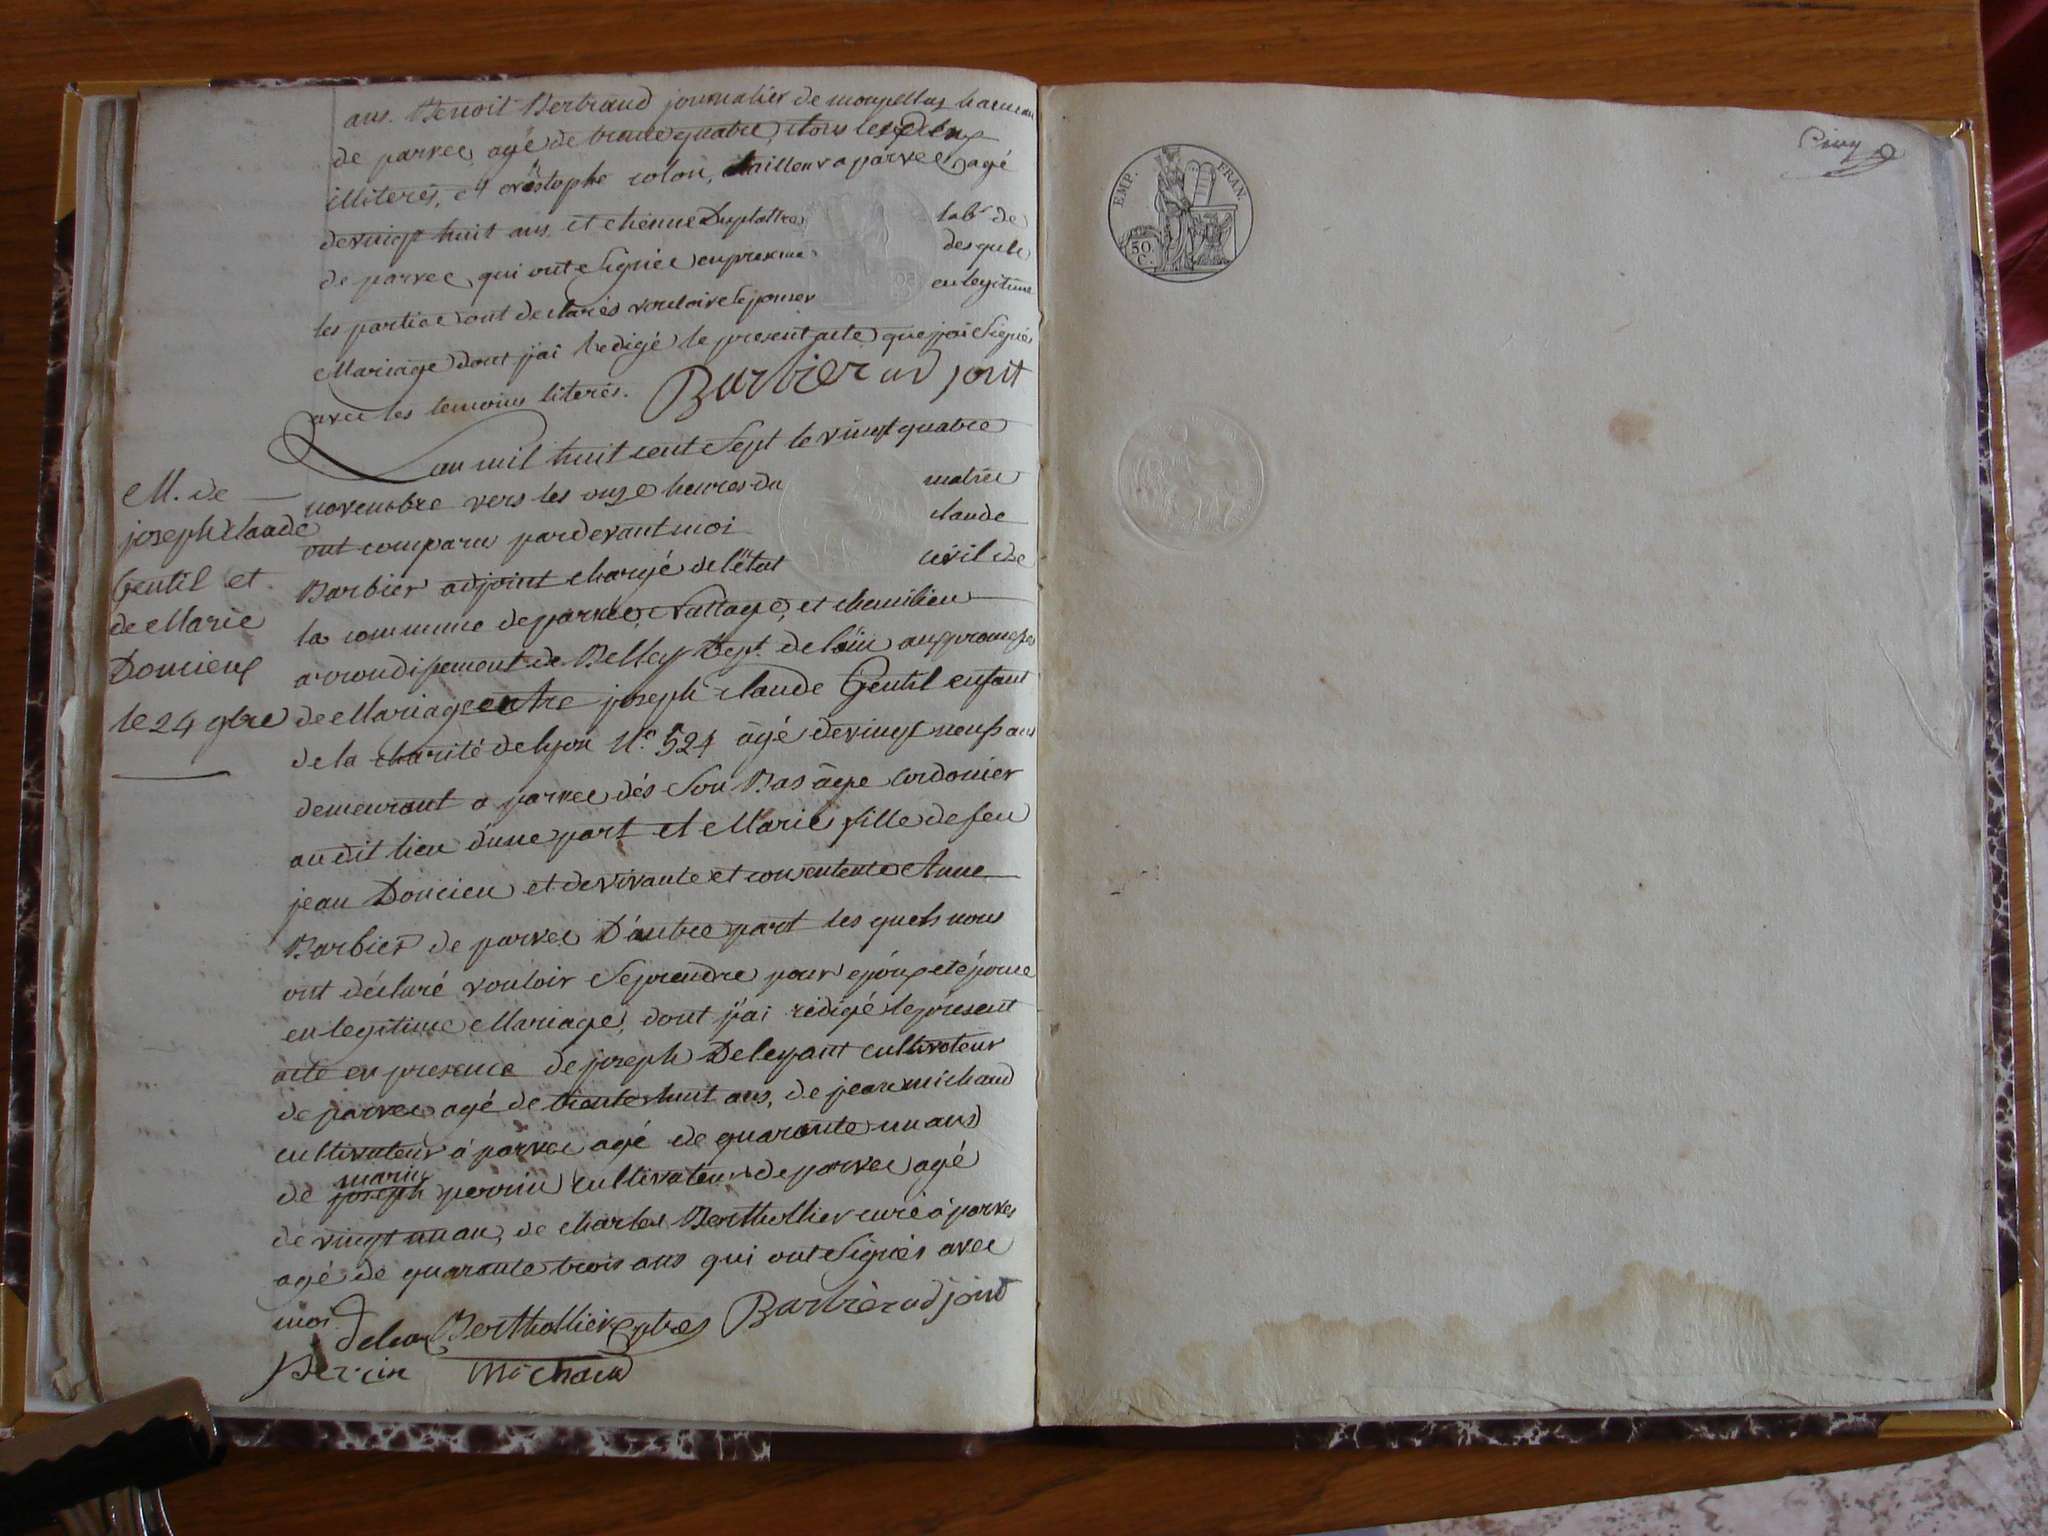 ans. Benoit Bertraud journalier de monpellas hameau
de parvec agé de trente quatre, tous les deux
illiterés, et cristophe colon, tailleur a parvec agé
de vingt huit ans, et etienne Duplattre labr. de
de parvec qui ont signée en presence desquels
les parties ont declarés vouloir sepouser en legitime
Mariage dont j'ai redigé le present acte que j'ai signés
avec les temoins literés. Barbier adjoint
Lan mil huit cent sept le vingt quatre
novembre vers les onze heures du matin
ont comparu pardevant moi claude
Barbier adjoint chargé de létat civil de
la commune de parvec, nattage, et chemilieu
arrondissement de Belley Dept. de lain aux promesses
de Mariage entre joseph claude Gentil enfant
de la charité de lyon N.o 524 âgé de vingt neuf ans
demeurant a parvec dés son Bas âge Cordonier
au dit lieu d'une part et Marie fille de feu
jean Doncieu et de vivante et consentente Anne
Barbier de parvec D'autre part les quels nous
ont déclaré vouloir se prendre pour époux et épouse
en legitime Mariage, dont j'ai rédigé le présent
acte en presence de joseph Deleyant cultivateur
de parvec agé de trente huit ans, de jean michaud
cultivateur à parvec agé de quarante un ans
de joseph marin perrin cultivateur de parvec agé
de vingt un an, de charles Berthollier curé à parves
agé de quarante trois ans qui ont signés avec
moi.
Berthollier ptre Barbier adjoint
Perrin Michaud
M. de
joseph claude
Gentil et
de Marie
Doncieux
le 24 9bre
EMP. FRAN.
50
C.